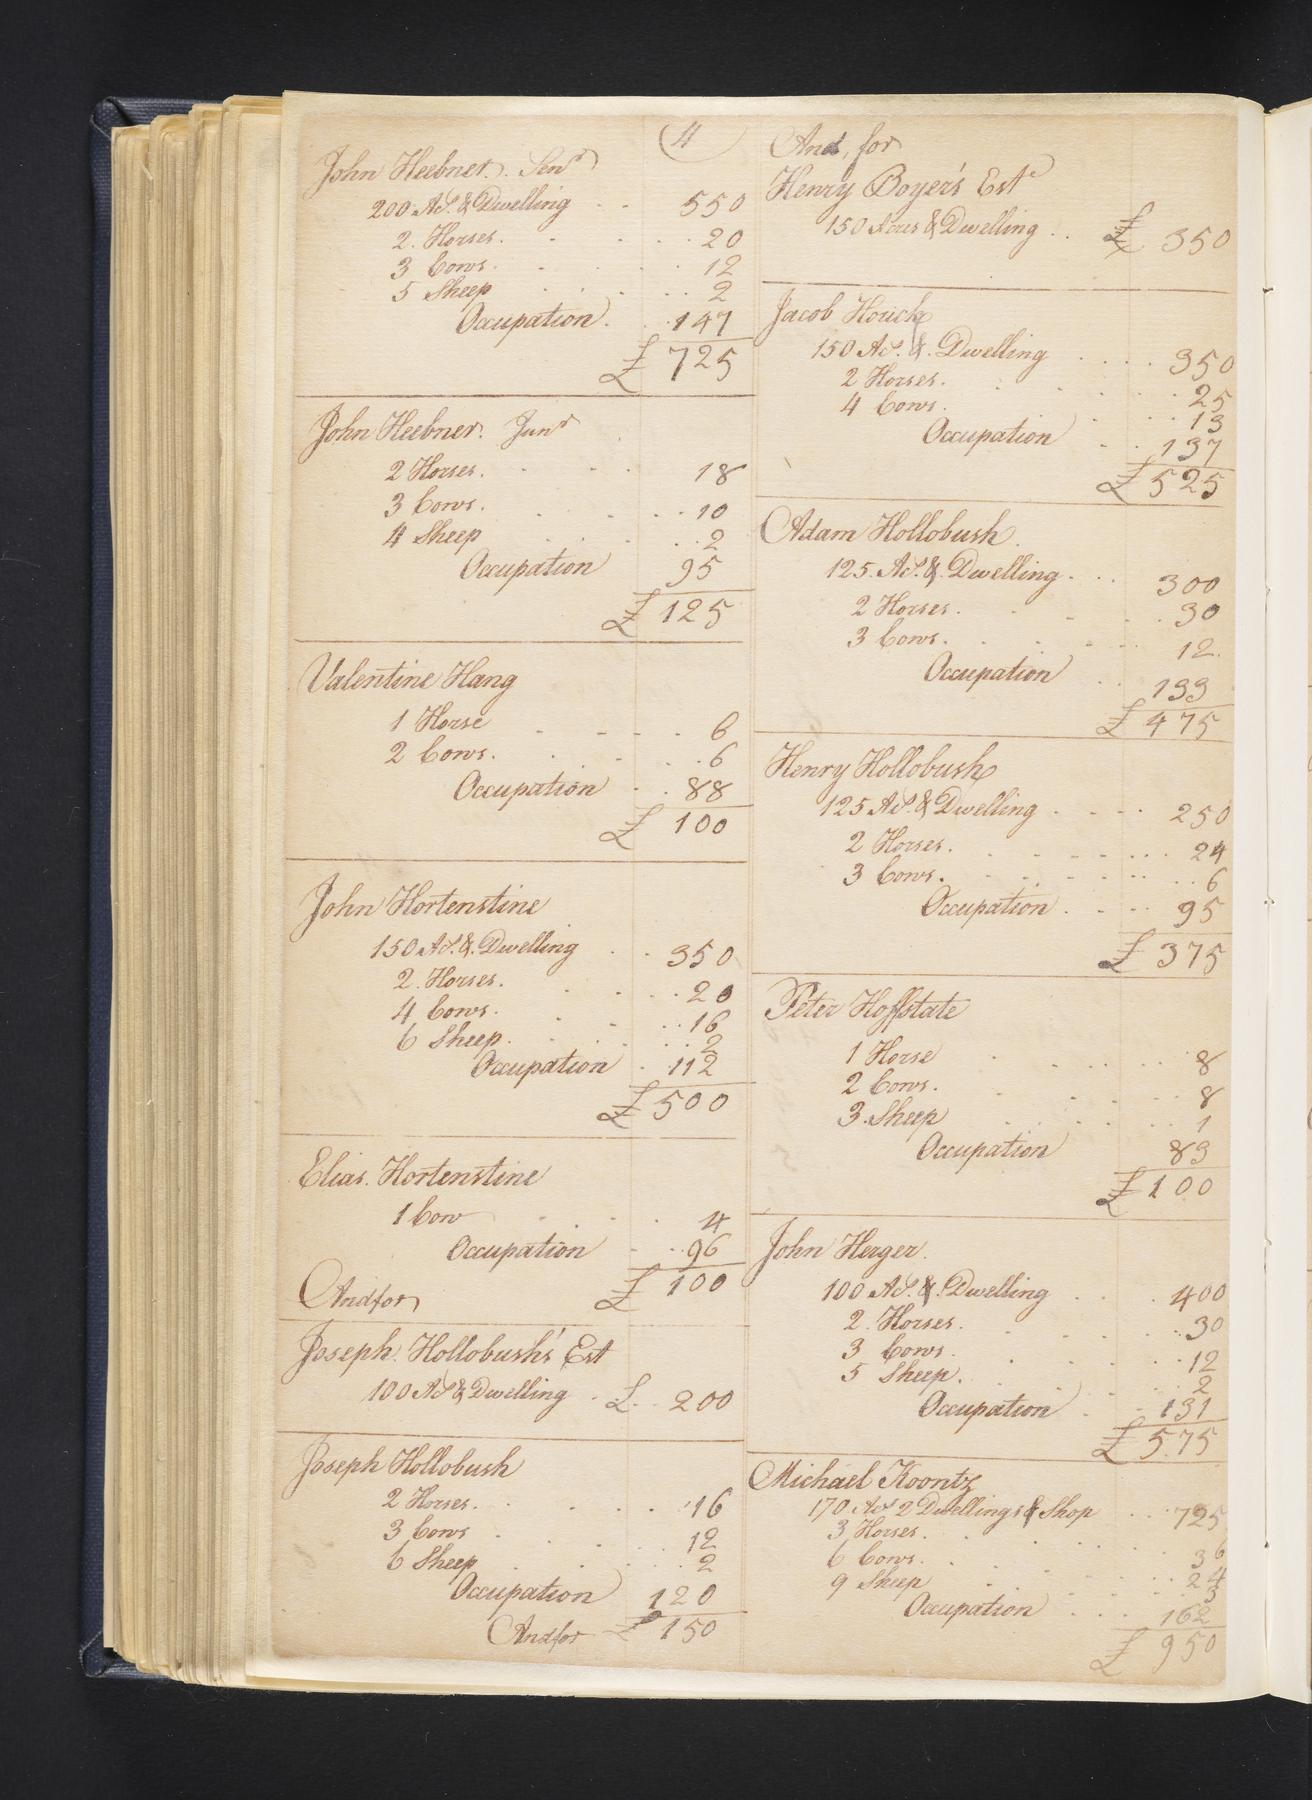 (11)
John Heebner. Senr
200 As. & Dwelling . . 550
2. Horses. . . . . 20
3 Cows. . . . . 12
5 Sheep . . . . 2
Occupation . . 147
£ 725
John Heebner. Junr
2 Horses. . . . 18
3 Cows. . . . . 10
4 Sheep . . . . 2
Occupation 95
£ 125
Valentine Hang
1 Horse . . . . 6
2 Cows. . . . . 6
Occupation . . 88
£ 100
John Hortenstine
150 As. & Dwelling . . 350
2. Horses. . . . 20
4 Cows. . . . . 16
6 Sheep. . . . . 2
Occupation . 112
£ 500
Elias. Hortenstine
1 Cow . . . 4
Occupation . . 96
£ 100
And for
Joseph. Hollobush's Est
100 As & Dwelling . £. . 200
Joseph Hollobush
2 Horses. . . . . 16
3 Cows . . . . 12
6 Sheep . . . . 2
Occupation 120
And for £ 150
And, for
Henry Boyer's Este
150 Acres & Dwelling . . £ 350
Jacob Houck
150 As. & Dwelling . . . . 350
2 Horses. . . . . 25
4 Cows. . . . 13
Occupation . . 137
£ 525
Adam Hollobush.
125. As. & Dwelling . . . 300
2 Horses. . . . 30
3 Cows. . . . . 12.
Occupation . . 133
£ 475
Henry Hollobush
125 As. & Dwelling . . . . 250
2 Horses. . . . . 24
3 Cows. . . . . 6
Occupation . . . . 95
£ 375
Peter Hoffstate
1 Horse . . . . 8
2 Cows. . . . . 8
3. Sheep . . . . 1
Occupation 83
£ 100
John Herger.
100 As. & Dwelling . . . 400
2. Horses. . . . . 30
3 Cows. . . . . 12
5 Sheep. . . . . 2
Occupation . . 131
£ 575
Michael Koontz
170 As 2 Dwellings & Shop . . 725
3 Horses. . . . . 36
6 Cows. . . . . 24
9 Sheep . . . . 3
Occupation . . . . 162
£ 950